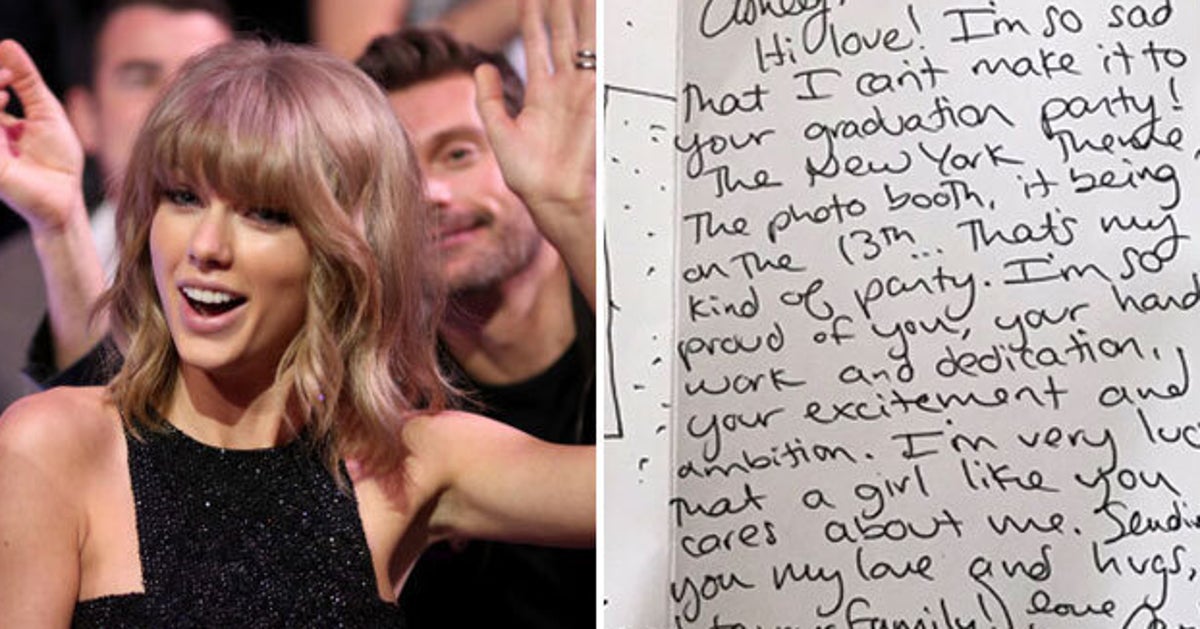 Ashley,
Hi love! I'm so sad
that I can't make it to
your graduation party!
The New York theme,
the photo booth, it being
on the 13th... That's my
kind of party. I'm so
proud of you, your hard
work and dedication,
your excitement and
ambition. I'm very luc
that a girl like you
cares about me. Sendi
you my love and hugs,
family! love